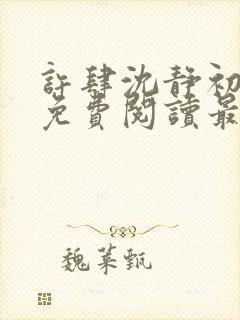 許肆沈靜初
免費閱讀最
魏菜甄